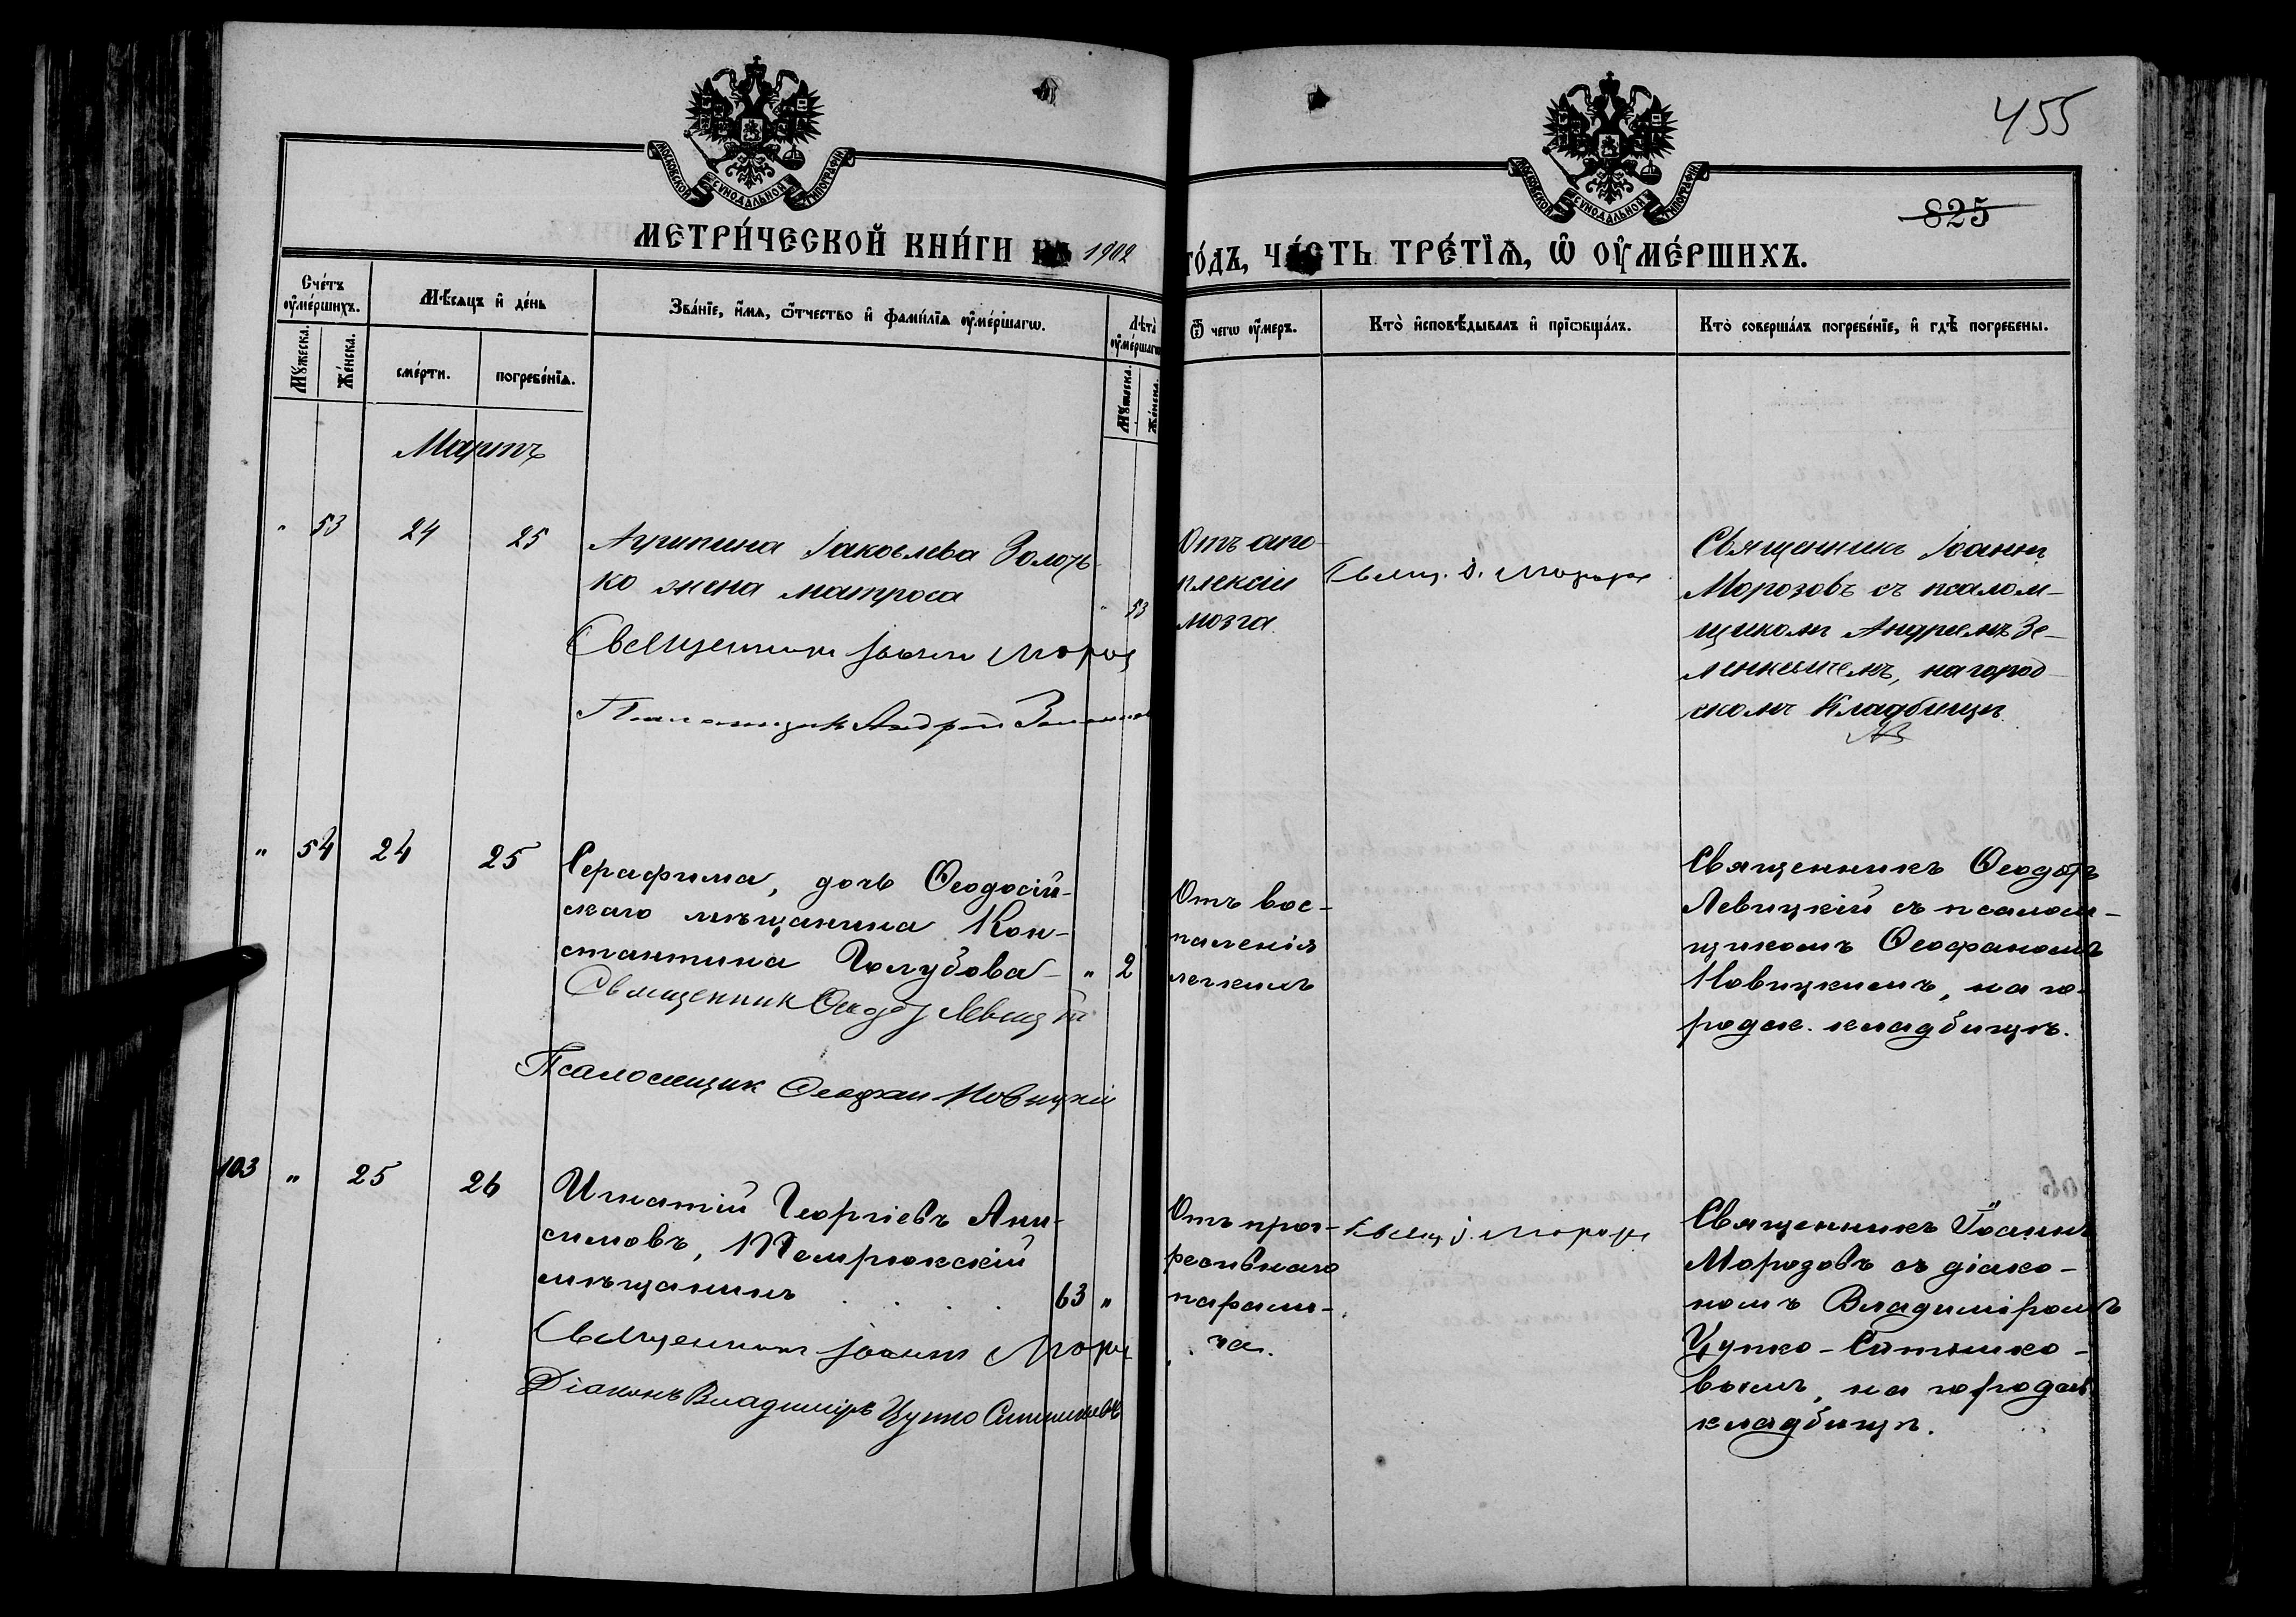 455
825
МОСКОВСКОЙ СУНОДАЛЬНОЙ ТИПОГРАФІИ
МОСКОВСКОЙ СУНОДАЛЬНОЙ ТИПОГРАФІИ
МЕТРИ́ЧЕСКОЙ КНИ́ГИ НА 1902
ГО́ДЪ, ЧА́СТЬ ТРЕ́ТІѦ, Ѿ ОУ҆МЕ́РШИХЪ.
Сче́тъ оу҆ме́ршихъ.
Мꙋ́жеска.
Же́нска.
Мѣ́сѧцъ и҆ де́нь
сме́рти.
погребе́нїѧ.
Зва́нїе, и҆́мѧ, ѻ҆́тчество и҆ фами́лїѧ оу҆ме́ршагѡ.
Лѣ́та оу҆ме́ршагѡ
Мꙋ́жеска.
Же́нска.
Ѿ чегѡ̀ оу҆́меръ.
Кто̀ и҆сповѣ́дывалъ и҆ прїѡбща́лъ.
Кто̀ соверша́лъ погребе́нїе, и҆ гдѣ̀ погребены.
Мартъ
" 53 24 25
Агрипина Іаковлева Золоть-
ко жена матроса
" 53
Священникъ Іоаннъ Мороз
Псаломщикъ Андрей
Отъ апо-
плексіи
мозга.
Свящ. І. Морозов
Священникъ Іоаннъ
Морозовъ съ псалом-
щикомъ Андреемъ Зе-
, на город
скомъ Кладбищѣ.
" 54 24 25
Серафима, дочь Ѳеодосій-
скаго мѣщанина Кон-
стантина Голубова - " 2
Священник Ѳеодор Левицкій
Псаломщик Ѳеофан Новицкій
Отъ вос-
паленія
легкихъ
Священникъ Ѳеодоръ
Левицкій съ псалом-
щикомъ Ѳеофаномъ
Новицкимъ, на го-
родск. кладбищѣ.
103 " 25 26
Игнатій Георгіевъ Ани-
симовъ, Темрюкскій
мѣщанинъ . . . . 63 "
Священникъ Іоаннъ Мороз
Діаконъ Владиміръ Цупко
Отъ прог-
ресивнаго
парали-
ча.
Свящ І. Морозов
Священникъ Іоаннъ
Морозовъ съ діако-
номъ Владиміромъ
Цупко-Ситнико-
вымъ, на городск
кладбищѣ.